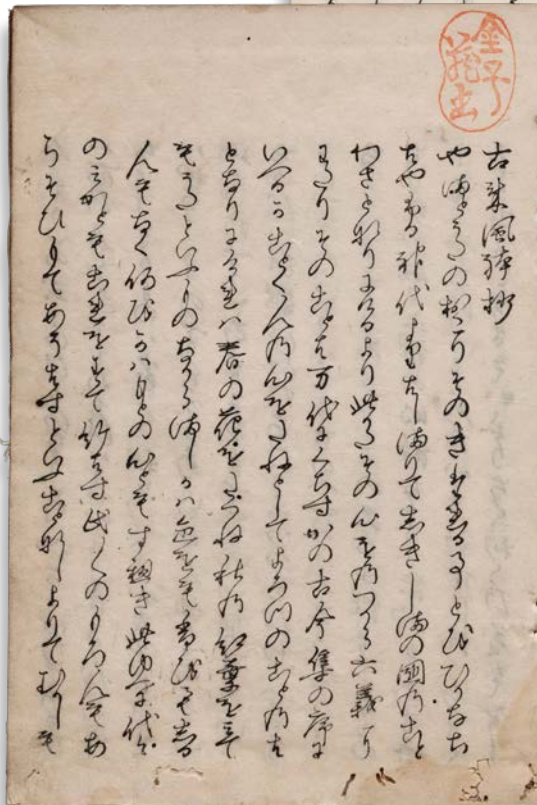 金子蔵書
古来風躰抄
やまとうたのおこりそのきたれる事とをひかなち
はやふる神代よりはしまりてしきしまの国のこと
わさとなりにけるより此かたその心をのつから六義に
わたりそのことは万代にくちすかの古今集の序に
いへるかことく人の心をたねとしてよろつのことのは
となりにけれは春の花をたつね秋の紅葉を見て
もうたといふものなからましかは色をも香をもしる
人もなく何をかはもとの心ともすへき此ゆへに代々
のみかともこれをすて給はす氏々のもろ人もあ
らそひもてあそはすといふことなしよりてむかしも